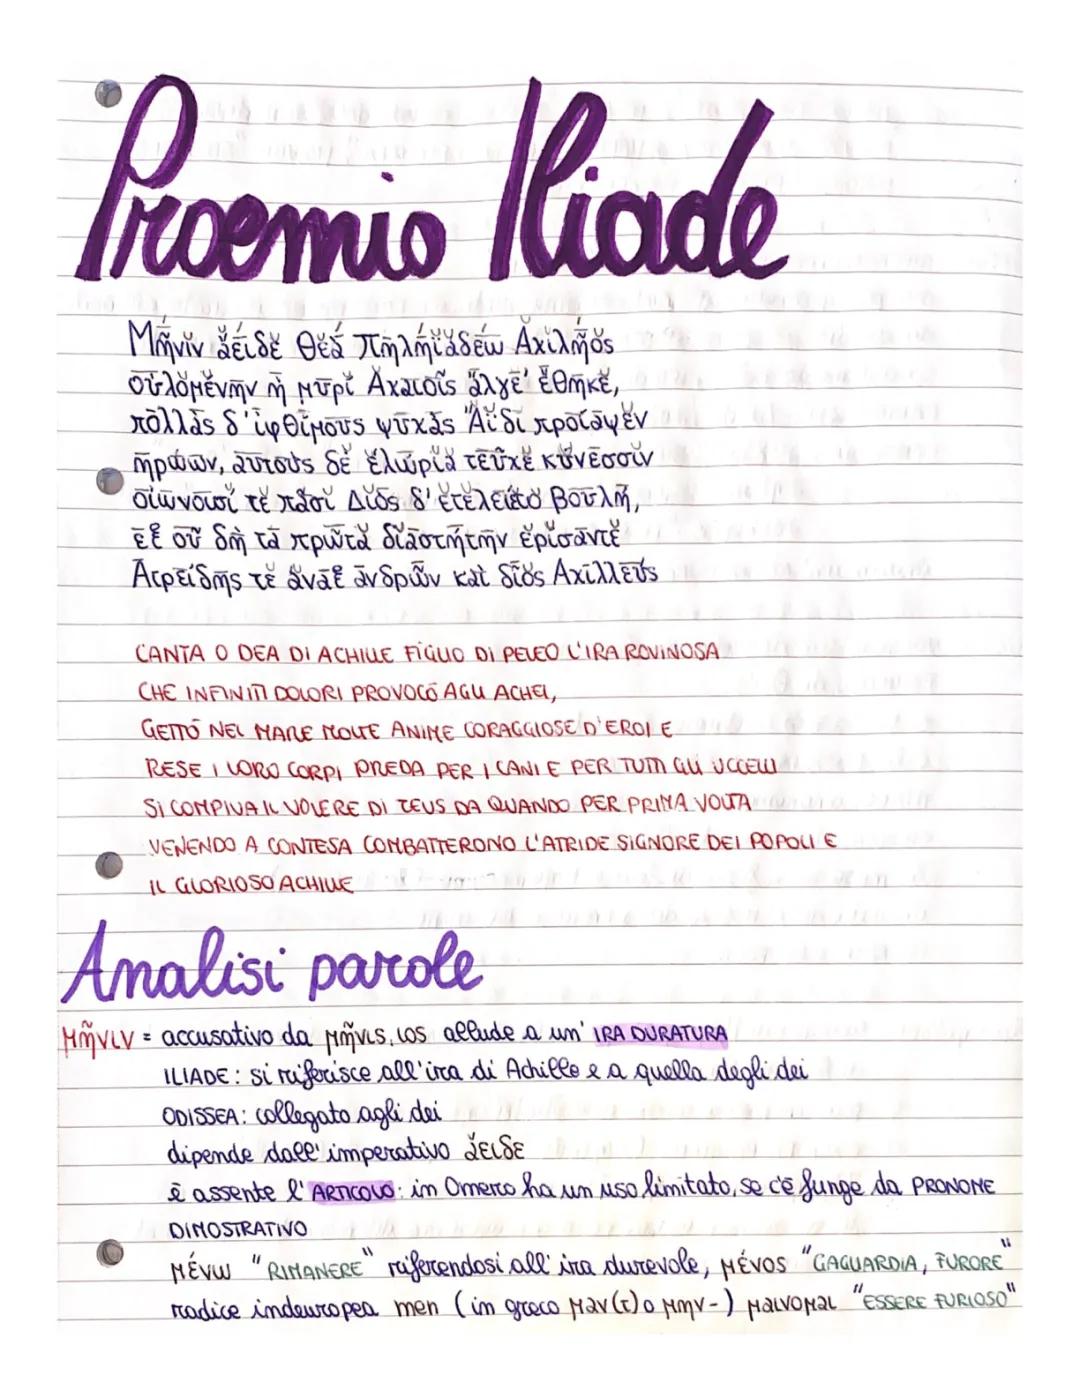 Proemio Iliade
Μῆνιν ἄειδε θεὰ Πηληϊάδεω Ἀχιλῆος
οὐλομένην ἣ μυρί' Ἀχαιοῖς ἄλγε' ἔθηκε,
πολλὰς δ' ἰφθίμους ψυχὰς Ἄϊδι προΐαψεν
ἡρώων, αὐτοὺς δὲ ἑλώρια τεῦχε κύνεσσιν
οἰωνοῖσί τε πᾶσι Διὸς δ' ἐτελείετο βουλή,
ἐξ οὗ δὴ τὰ πρῶτα διαστήτην ἐρίσαντε
Ἀτρείδης τε ἄναξ ἀνδρῶν καὶ δῖος Ἀχιλλεύς
CANTA O DEA DI ACHILLE FIGLIO DI PELEO L'IRA ROVINOSA
CHE INFINITI DOLORI PROVOCÓ AGLI ACHEI,
GETTÓ NEL MARE MOLTE ANIME CORAGGIOSE D'EROI E
RESE I LORO CORPI PREDA PER I CANI E PER TUTTI GLI UCCELLI
SI COMPIVA IL VOLERE DI ZEUS DA QUANDO PER PRIMA VOLTA
VENENDO A CONTESA COMBATTERONO L'ATRIDE SIGNORE DEI POPOLI E
IL GLORIOSO ACHILLE
Analisi parole
μῆνιν = accusativo da μῆνις, ιος allude a un' IRA DURATURA
ILIADE: si riferisce all'ira di Achille e a quella degli dei
ODISSEA: collegato agli dei
dipende dall'imperativo ἄειδε
è assente l'ARTICOLO: in Omero ha un uso limitato, se c'è funge da PRONOME
DIMOSTRATIVO
μένω "RIMANERE" riferendosi all'ira durevole, μένος "GAGLIARDIA, FURORE"
radice indeuropea men (in greco μαν(τ) o μην-) μαινομαι "ESSERE FURIOSO"